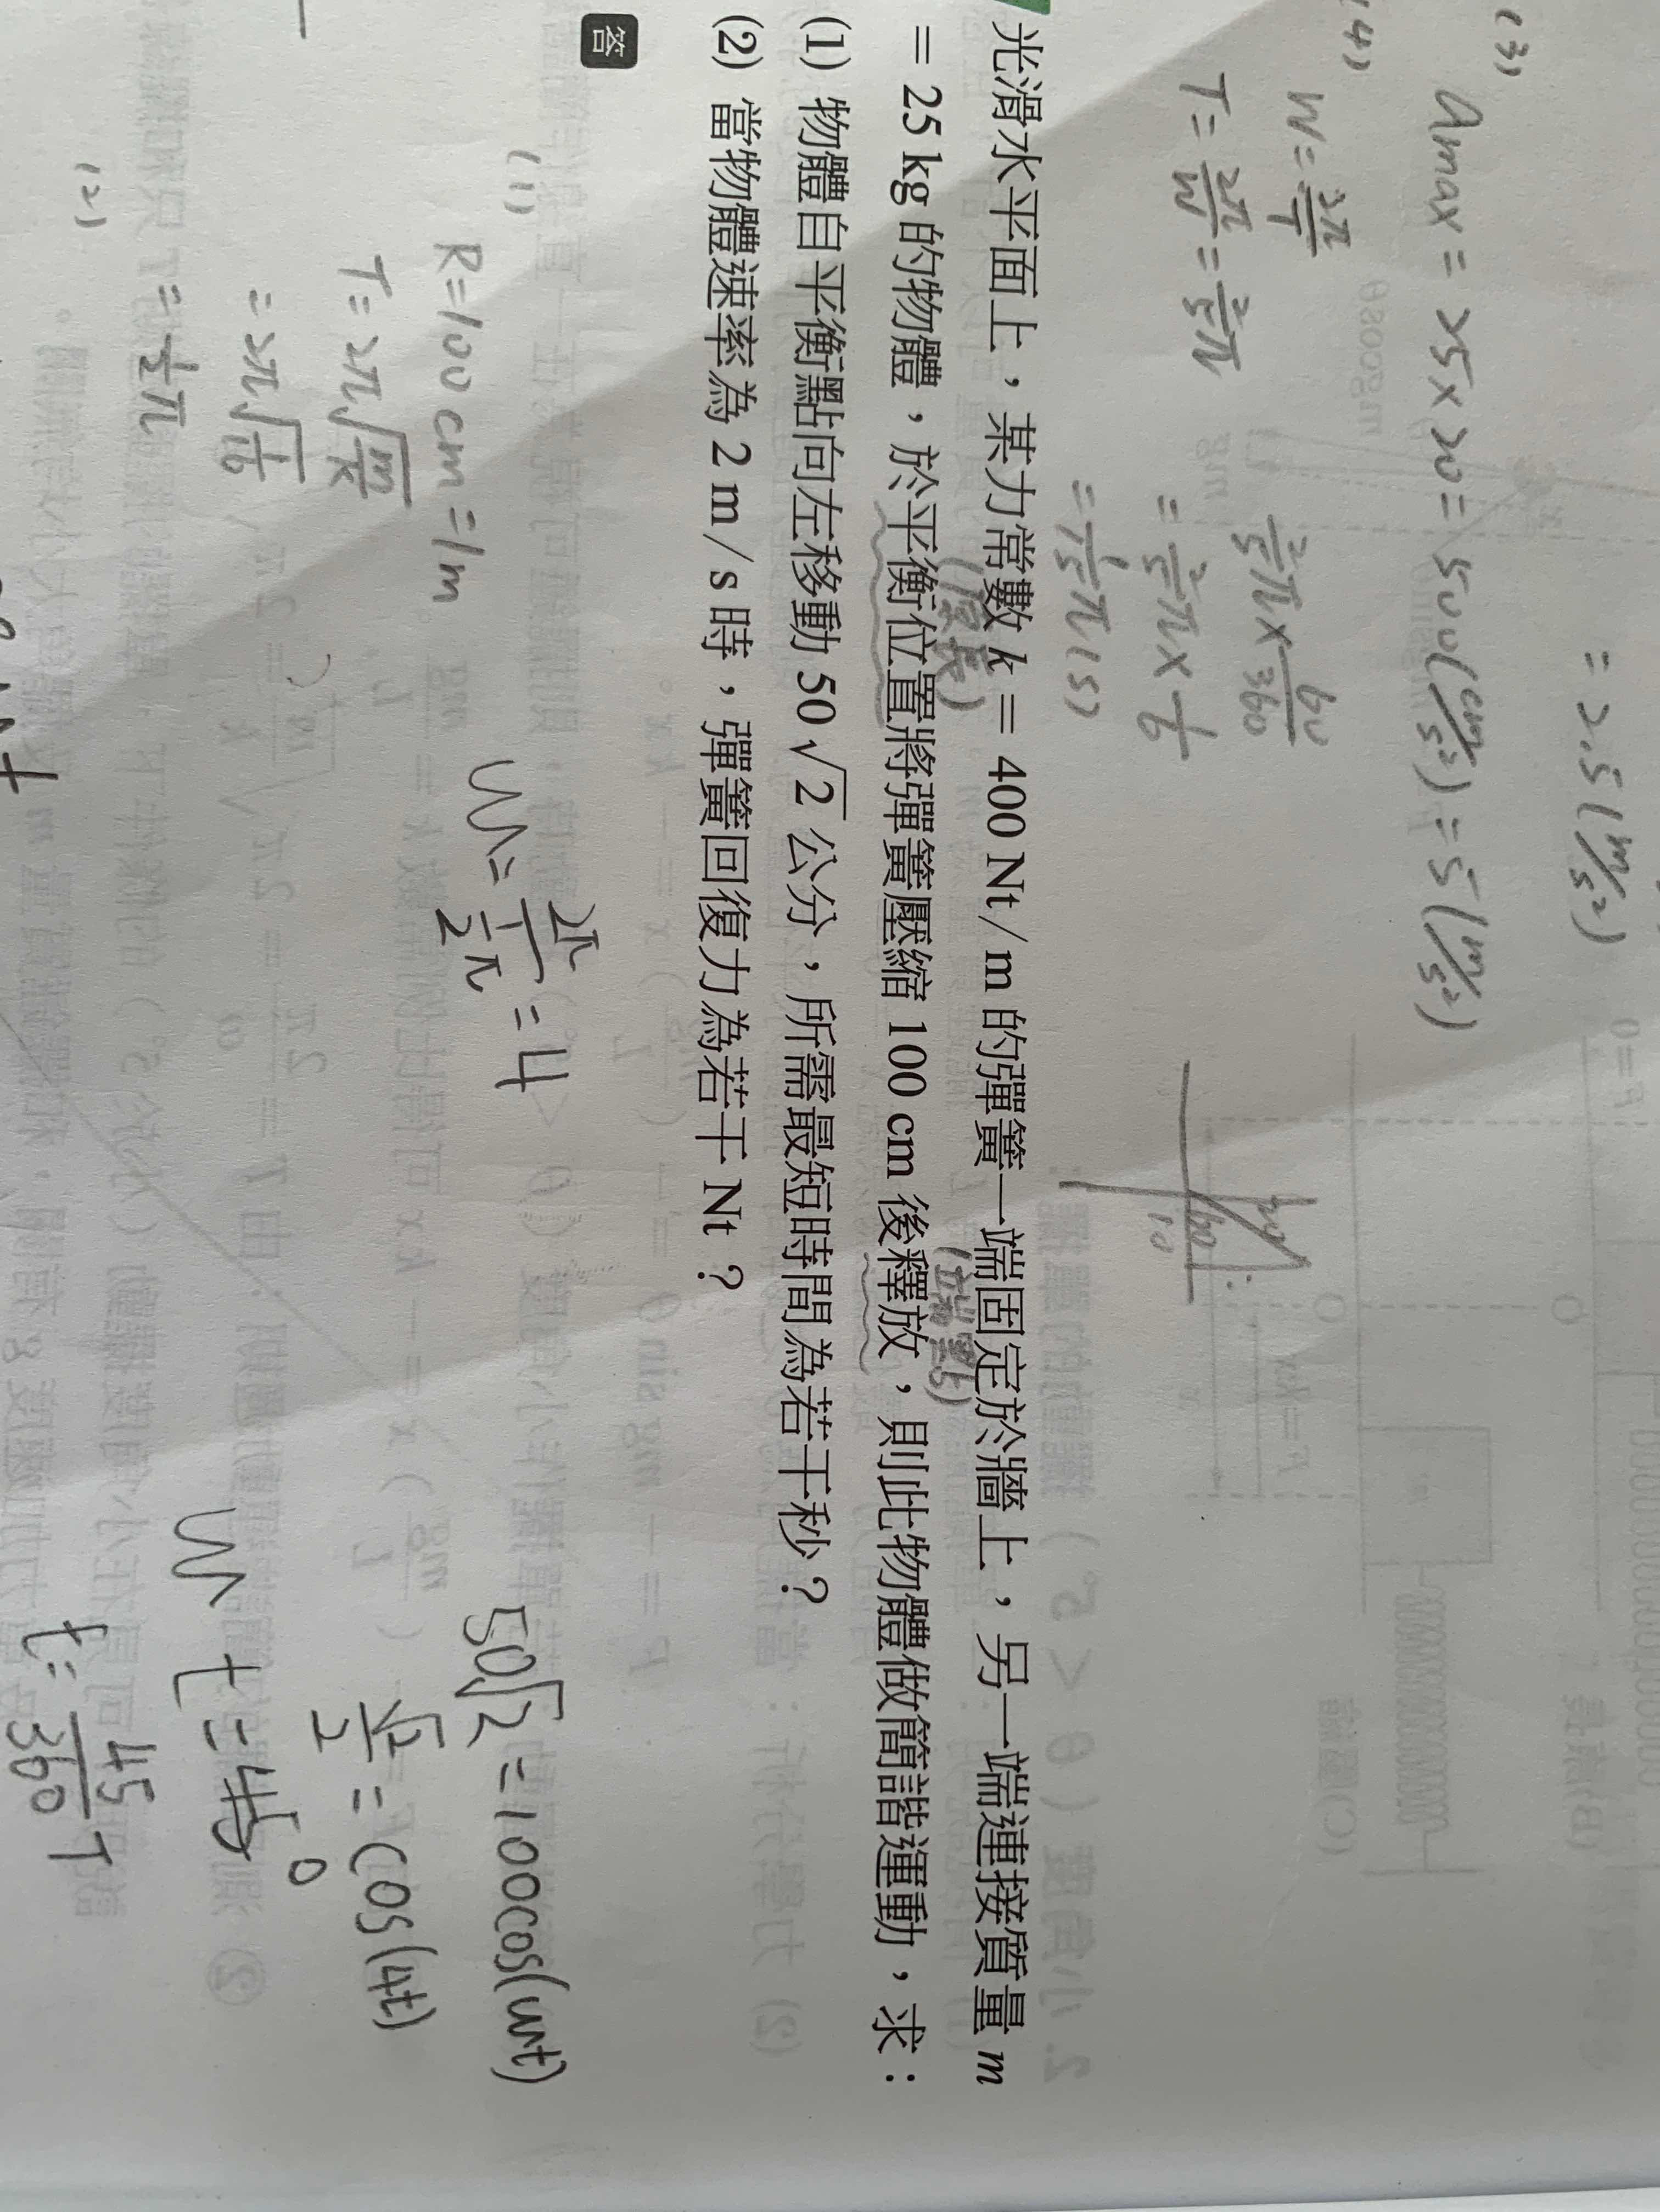 (3)
= 2.5 (m/s²)
amax = 25×20 = 500 (cm/s²) = 5 (m/s²)
(4)
W = 2π/T
T = 2π/W = 2/5 π
2/5 π × 60/360
= 2/5 π × 1/6
= 1/15 π (s)
60
10
光滑水平面上，某力常數 k = 400 Nt/m 的彈簧一端固定於牆上，另一端連接質量 m
(原長)
(端點)
= 25 kg 的物體，於平衡位置將彈簧壓縮 100 cm 後釋放，則此物體做簡諧運動，求：
(1) 物體自平衡點向左移動 50√2 公分，所需最短時間為若干秒？
(2) 當物體速率為 2 m/s 時，彈簧回復力為若干 Nt？
答
(1)
R=100 cm = 1m
T = 2π√(m/k)
= 2π√(1/16)
= 1/2 π
W = 2π/(1/2 π) = 4
50√2 = 100cos(wt)
√2/2 = cos(4t)
W t = 45°
t = 45/360 T
(2)